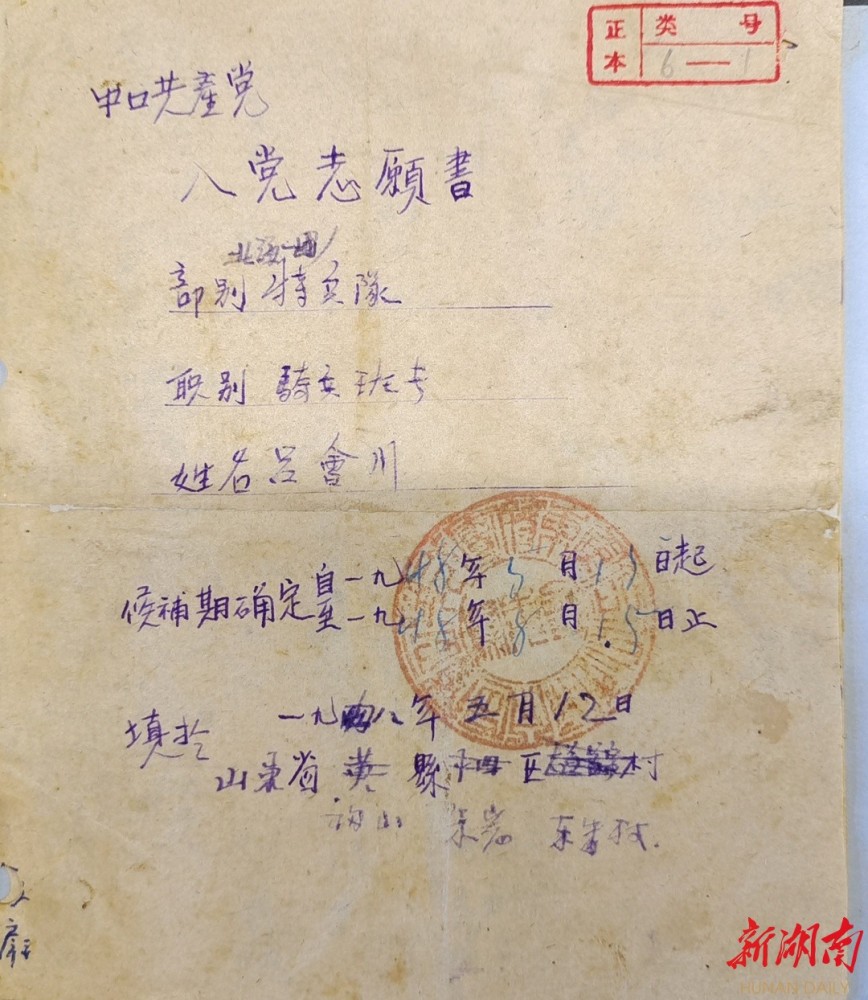 正本 类号
6—1
中口共産党
入党志願書
北海一团
部别 特兵隊
职别 騎兵班长
姓名 呂會川
候補期确定自一九48年5月15日起
至一九48年8月15日止
填於 一九四八年五月12日
山东省黄縣 区 村
新湖南
HUNAN DAILY